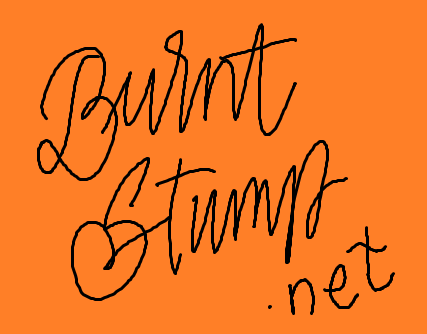 Burnt
Stump
.net